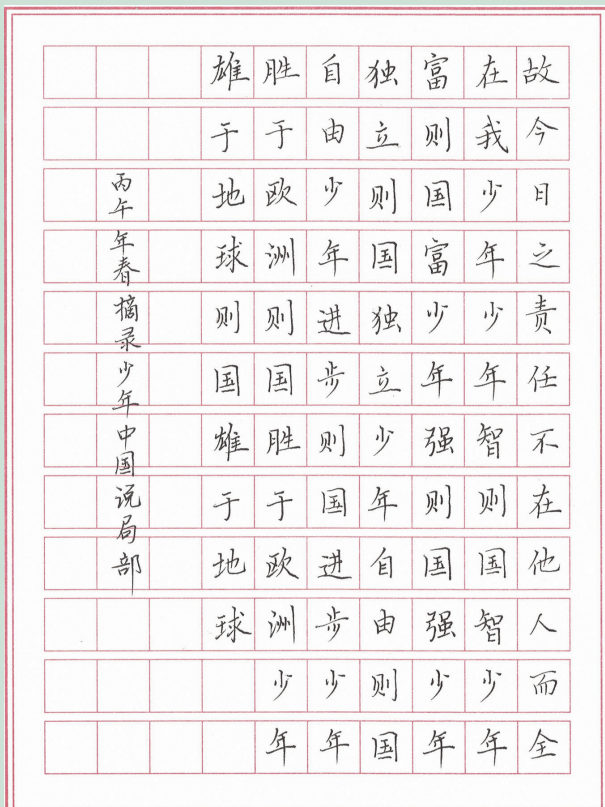 故今日之责任不在他人而全
在我少年少年智则国智少年
富则国富少年强则国强少年
独立则国独立少年自由则国
自由少年进步则国进步少年
胜于欧洲则国胜于欧洲少年
雄于地球则国雄于地球
丙午年春摘录少年中国说局部